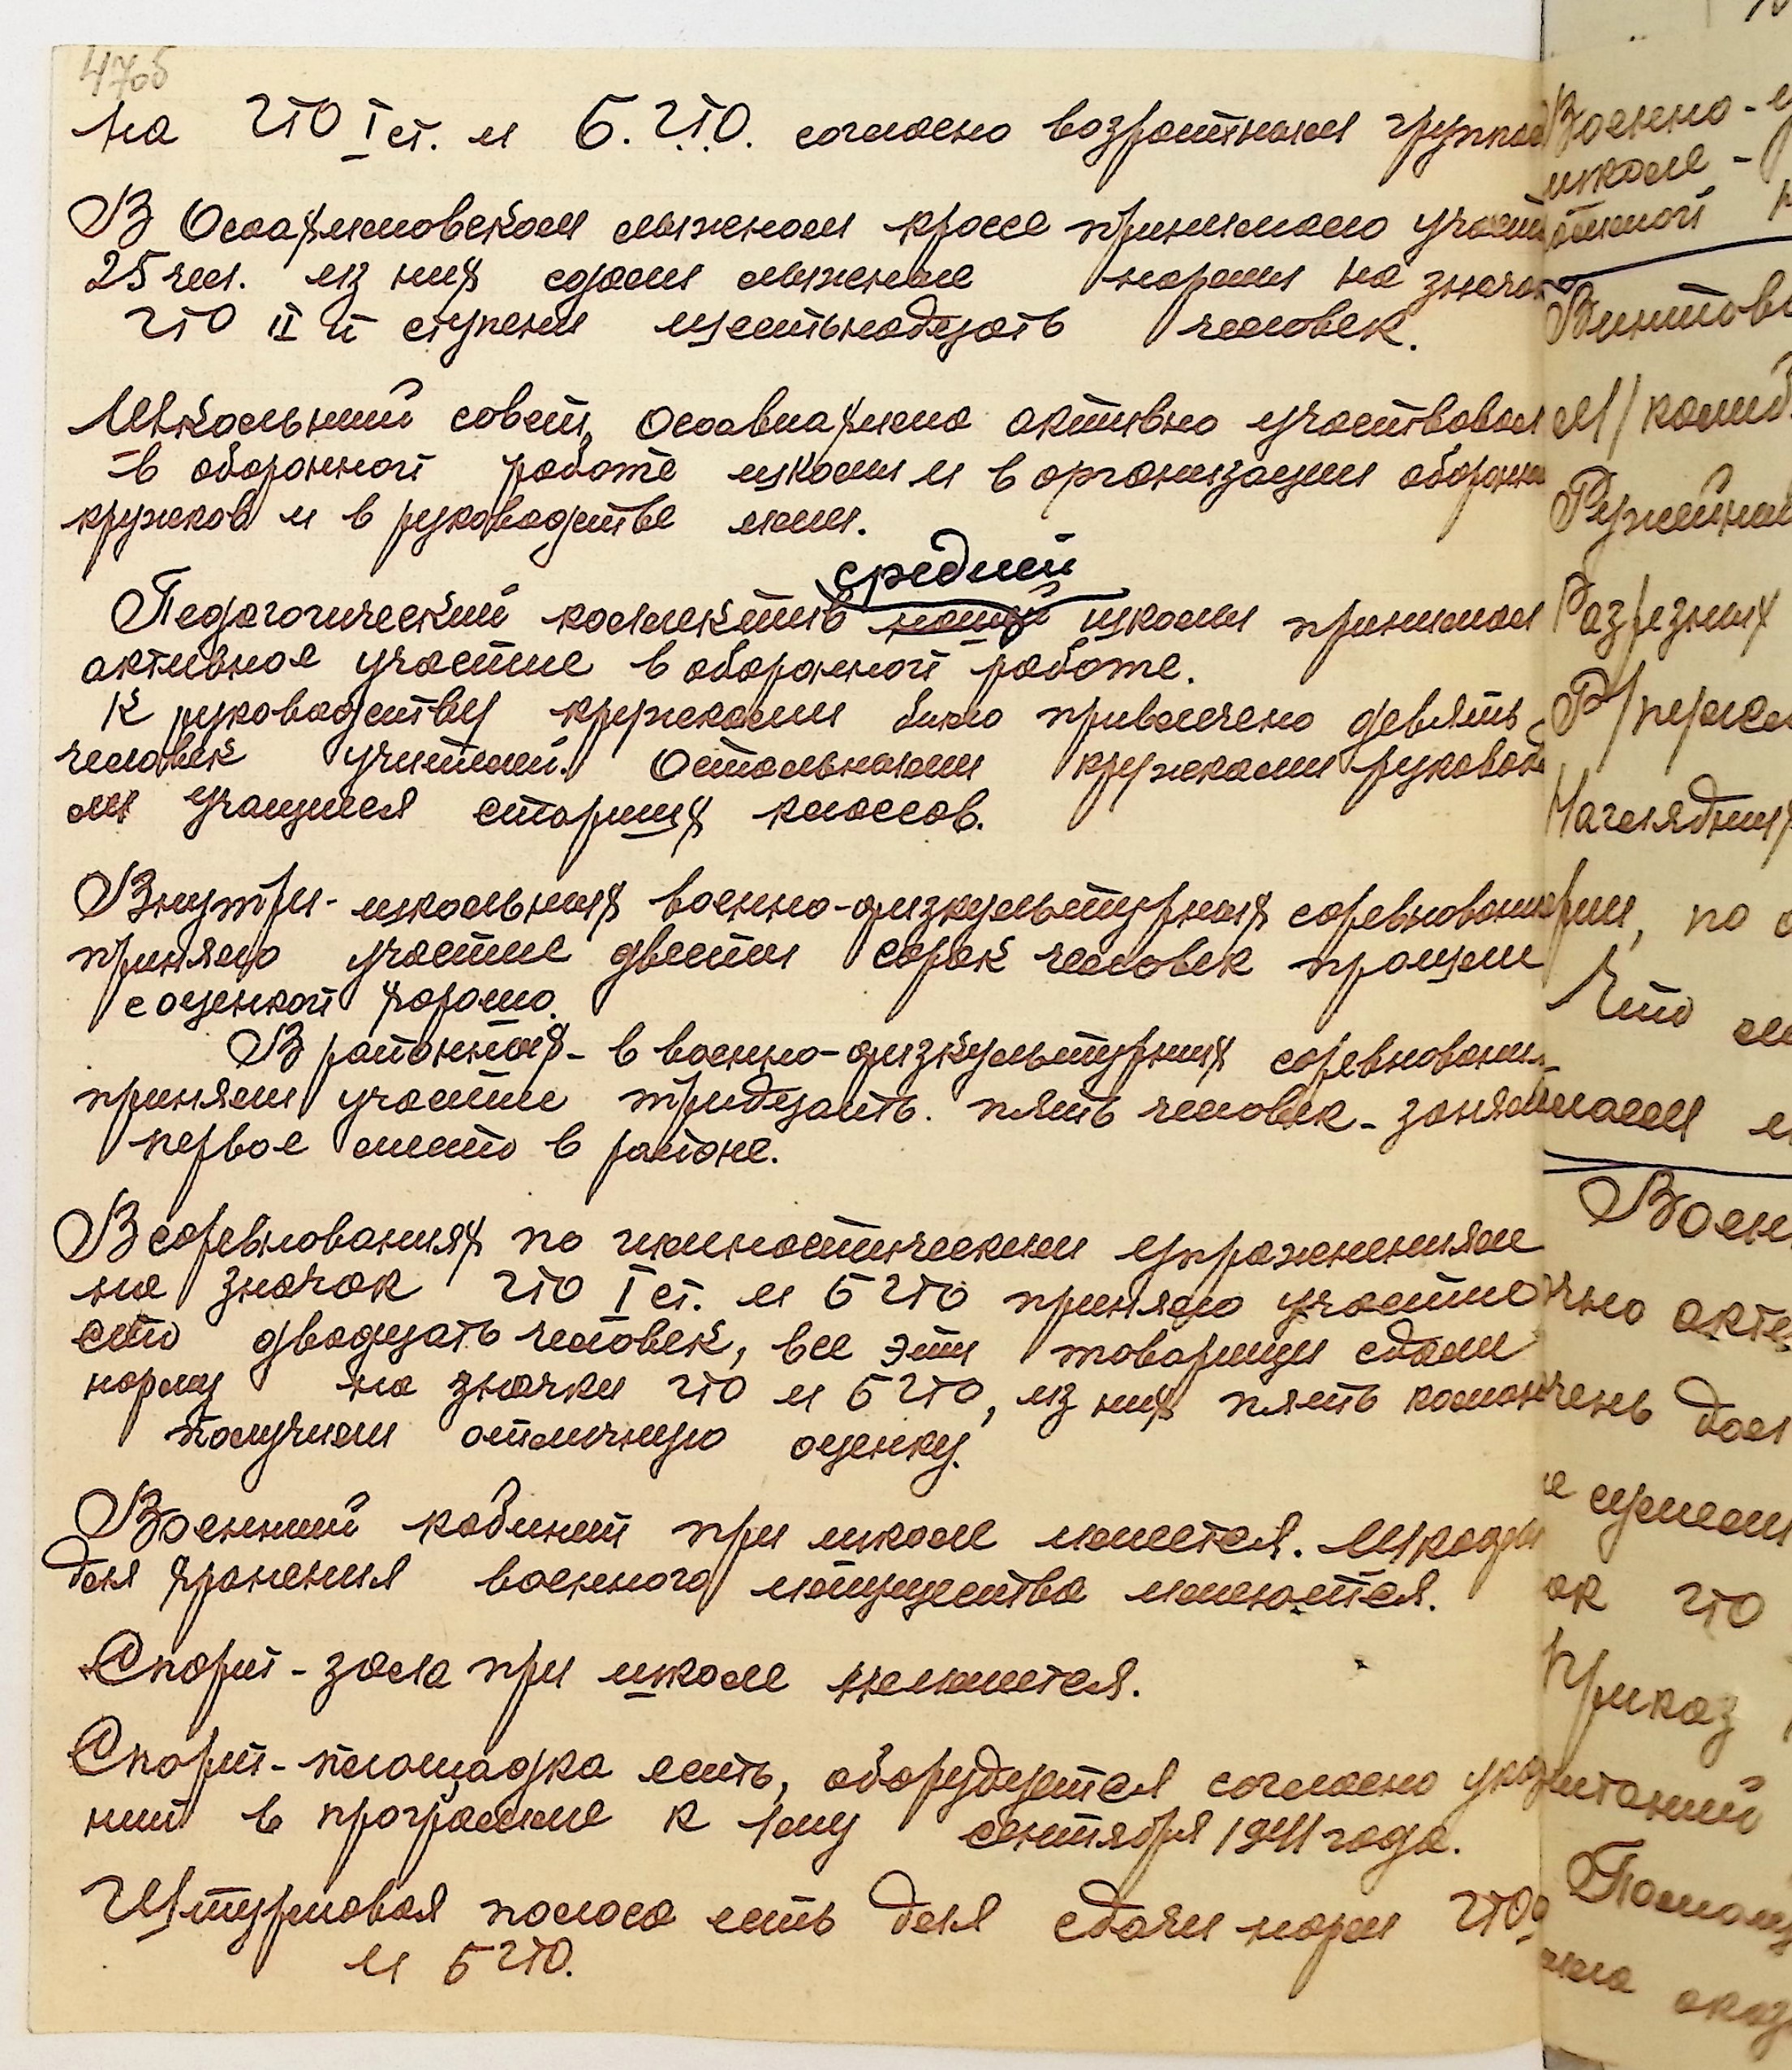 47об
на ГТО I ст. и Б.Г.Т.О. согласно возрастным группам
В Осоафимовском лыжном кроссе принимало участ
25 чел. из них сдали лыжные нормы на значок
ГТО II й ступени шестьнадцать человек.
Школьный совет, осоавиахима активно участвовал
в оборонной работе школы и в организации оборонн
кружков и в руководстве ими.
средней
Педагогический коллектив нашей школы принимал
активное участие в оборонной работе.
К руководству кружками было привлечено девять
человек учителей. Остальными кружками руковод
ли учащиеся старших классов.
Внутри-школьных военно-физкультурных соревнован
приняло участие двести сорок человек прошли
с оценкой хорошо.
В районных - в военно-физкультурных соревновани
приняли участие тридцать пять человек - заняли
первое место в районе.
В соревнованиях по гимностическим упражнениям
на значок ГТО I ст. и БГТО приняло участие
сто двадцать человек, все эти товарищи сдали
норму на значки ГТО и БГТО, из них пять коман
получили отличную оценку.
Военный кабинет при школе имеется. Шкафы
для хранения военного имущества имеются.
Спорт-зала при школе неимеется.
Спорт-площадка есть, оборудуется согласно указ
ний в программе к 1му сентября 1941 года.
Штурмовая полоса есть для сдачи норм ГТО
и БГТО.
Военно-у
школе -
Винтово
М/ комид
Ружейных
Разрезных
Наглядных
рии, по
Что
Воен
чно акти
чень дол
ок ГТО
Приказ